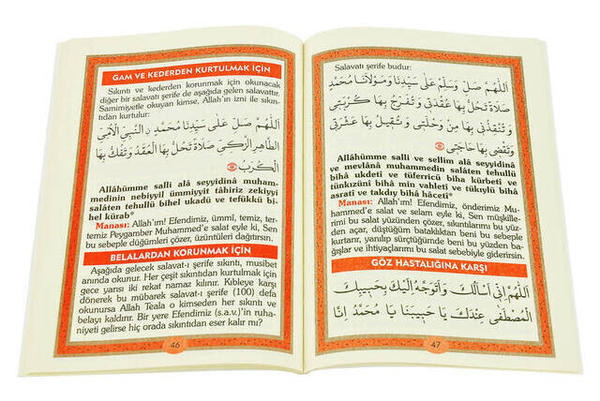 GAM VE KEDERDEN KURTULMAK İÇİN
Sıkıntı ve kederden korunmak için okunacak
diğer bir salavatı şerife de aşağıda gelen salavattır.
Samimiyetle okuyan kimse, Allah'ın izni ile sıkın-
tıdan kurtulur:
اَللّٰهُمَّ صَلِّ عَلَى سَيِّدِنَا مُحَمَّدٍ نِ النَّبِيِّ الْاُمِّيِّ
الطَّاهِرِ الزَّكِيِّ صَلَاةً تَحُلُّ بِهَا الْعُقَدَ وَتَفُكُّ بِهَا
الْكُرَبَ
Allâhümme salli alâ seyyidinâ muham-
medinin nebiyyil ümmiyyit tâhiriz zekiyyi
salâten tehullü bihel ukadü ve tefükkü bi-
hel kürab*
Manası: Allah'ım! Efendimiz, ümmî, temiz, ter-
temiz Peygamber Muhammed'e salat eyle ki, Sen
bu sebeple düğümleri çözer, üzüntüleri dağıtırsın.
BELALARDAN KORUNMAK İÇİN
Aşağıda gelecek salavat-ı şerife sıkıntı, musibet
anında okunur. Her çeşit sıkıntıdan kurtulmak için
gece yarısı iki rekat namaz kılınır. Kıbleye karşı
dönerek bu mübarek salavat-ı şerife (100) defa
okunursa Allah Teala o kimseden her sıkıntı ve
belayı kaldırır. Bir yere Efendimiz (s.a.v.)'in ruha-
niyeti gelirse hiç orada sıkıntıdan eser kalır mı?
46
Salavatı şerife budur:
اَللّٰهُمَّ صَلِّ وَسَلِّمْ عَلَى سَيِّدِنَا وَمَوْلَانَا مُحَمَّدٍ
صَلَاةً تَحُلُّ بِهَا عُقْدَتِي وَتُفَرِّجُ بِهَا كُرْبَتِي
وَتُنْقِذُنِي بِهَا مِنْ وَحْلَتِي وَتُقِيلُ بِهَا عَثْرَتِي
وَتَقْضِي بِهَا حَاجَتِي
Allâhümme salli ve sellim alâ seyyidinâ
ve mevlânâ muhammedin salâten tehullü
bihâ ukdeti ve tüferricü bihâ kürbeti ve
tünkızüni bihâ min vahleti ve tükıylü bihâ
asrati ve takdıy bihâ hâceti*
Manası: Allah'ım! Efendimiz, önderimiz Mu-
hammed'e salat ve selam eyle ki, Sen müşkille-
rimi bu salat yüzünden çözer, sıkıntılarımı bu yüz-
den açar, düştüğüm bataklıktan beni bu sebeple
kurtarır, yanılıp sürçtüğümde beni bu yüzden ba-
ğışlar ve ihtiyaçlarımı bu salat sebebiyle giderirsin.
GÖZ HASTALIĞINA KARŞI
اَللّٰهُمَّ اِنِّي اَسْأَلُكَ وَاَتَوَجَّهُ اِلَيْكَ بِحَبِيبِكَ
الْمُصْطَفَى عِنْدَكَ يَا حَبِيبَنَا يَا مُحَمَّدُ اِنَّا
47